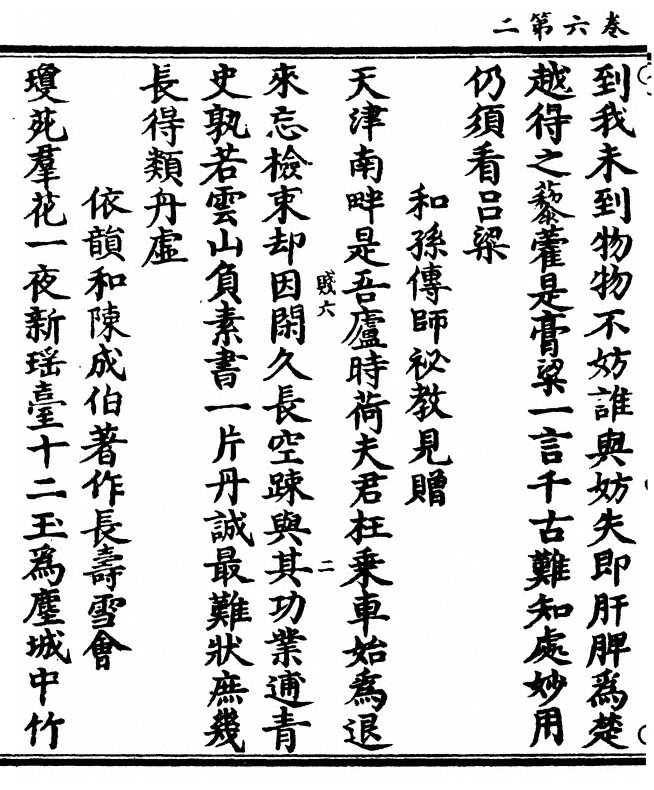 二第六卷
到我未到物物不妨誰與妨失即肝脾爲楚
越得之藜藿是膏粱一言千古難知處妙用
仍須看吕粱
和孫傳師祕教見贈
天津南畔是吾廬時荷夫君枉乗車始爲退
賤六
二
來忘檢束却因閑久長空踈與其功業逋青
史孰若雲山負素書一片丹誠最難狀庶幾
長得類丹虛
依韻和陳成伯著作長壽雪會
瓊苑羣花一夜新瑶臺十二玉爲塵城中竹